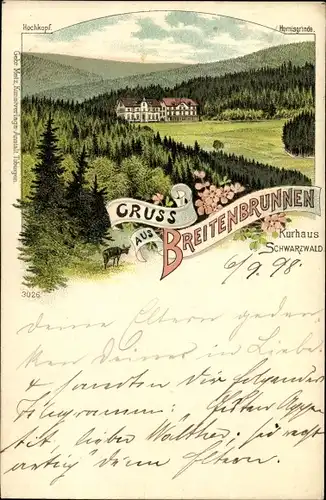 Hochkopf.
Hornisgrinde.
Gebr. Metz, Kunstverlags-Anstalt, Tübingen.
GRUSS
AUS
BREITENBRUNNEN
Kurhaus
SCHWARZWALD.
6/9. 98.
3026
deine Eltern geden-
ken Deiner in Liebe
& sandten Dir folgendes
Telegramm: Guten Appe-
tit, lieber Walther, sei recht
artig deine Eltern.